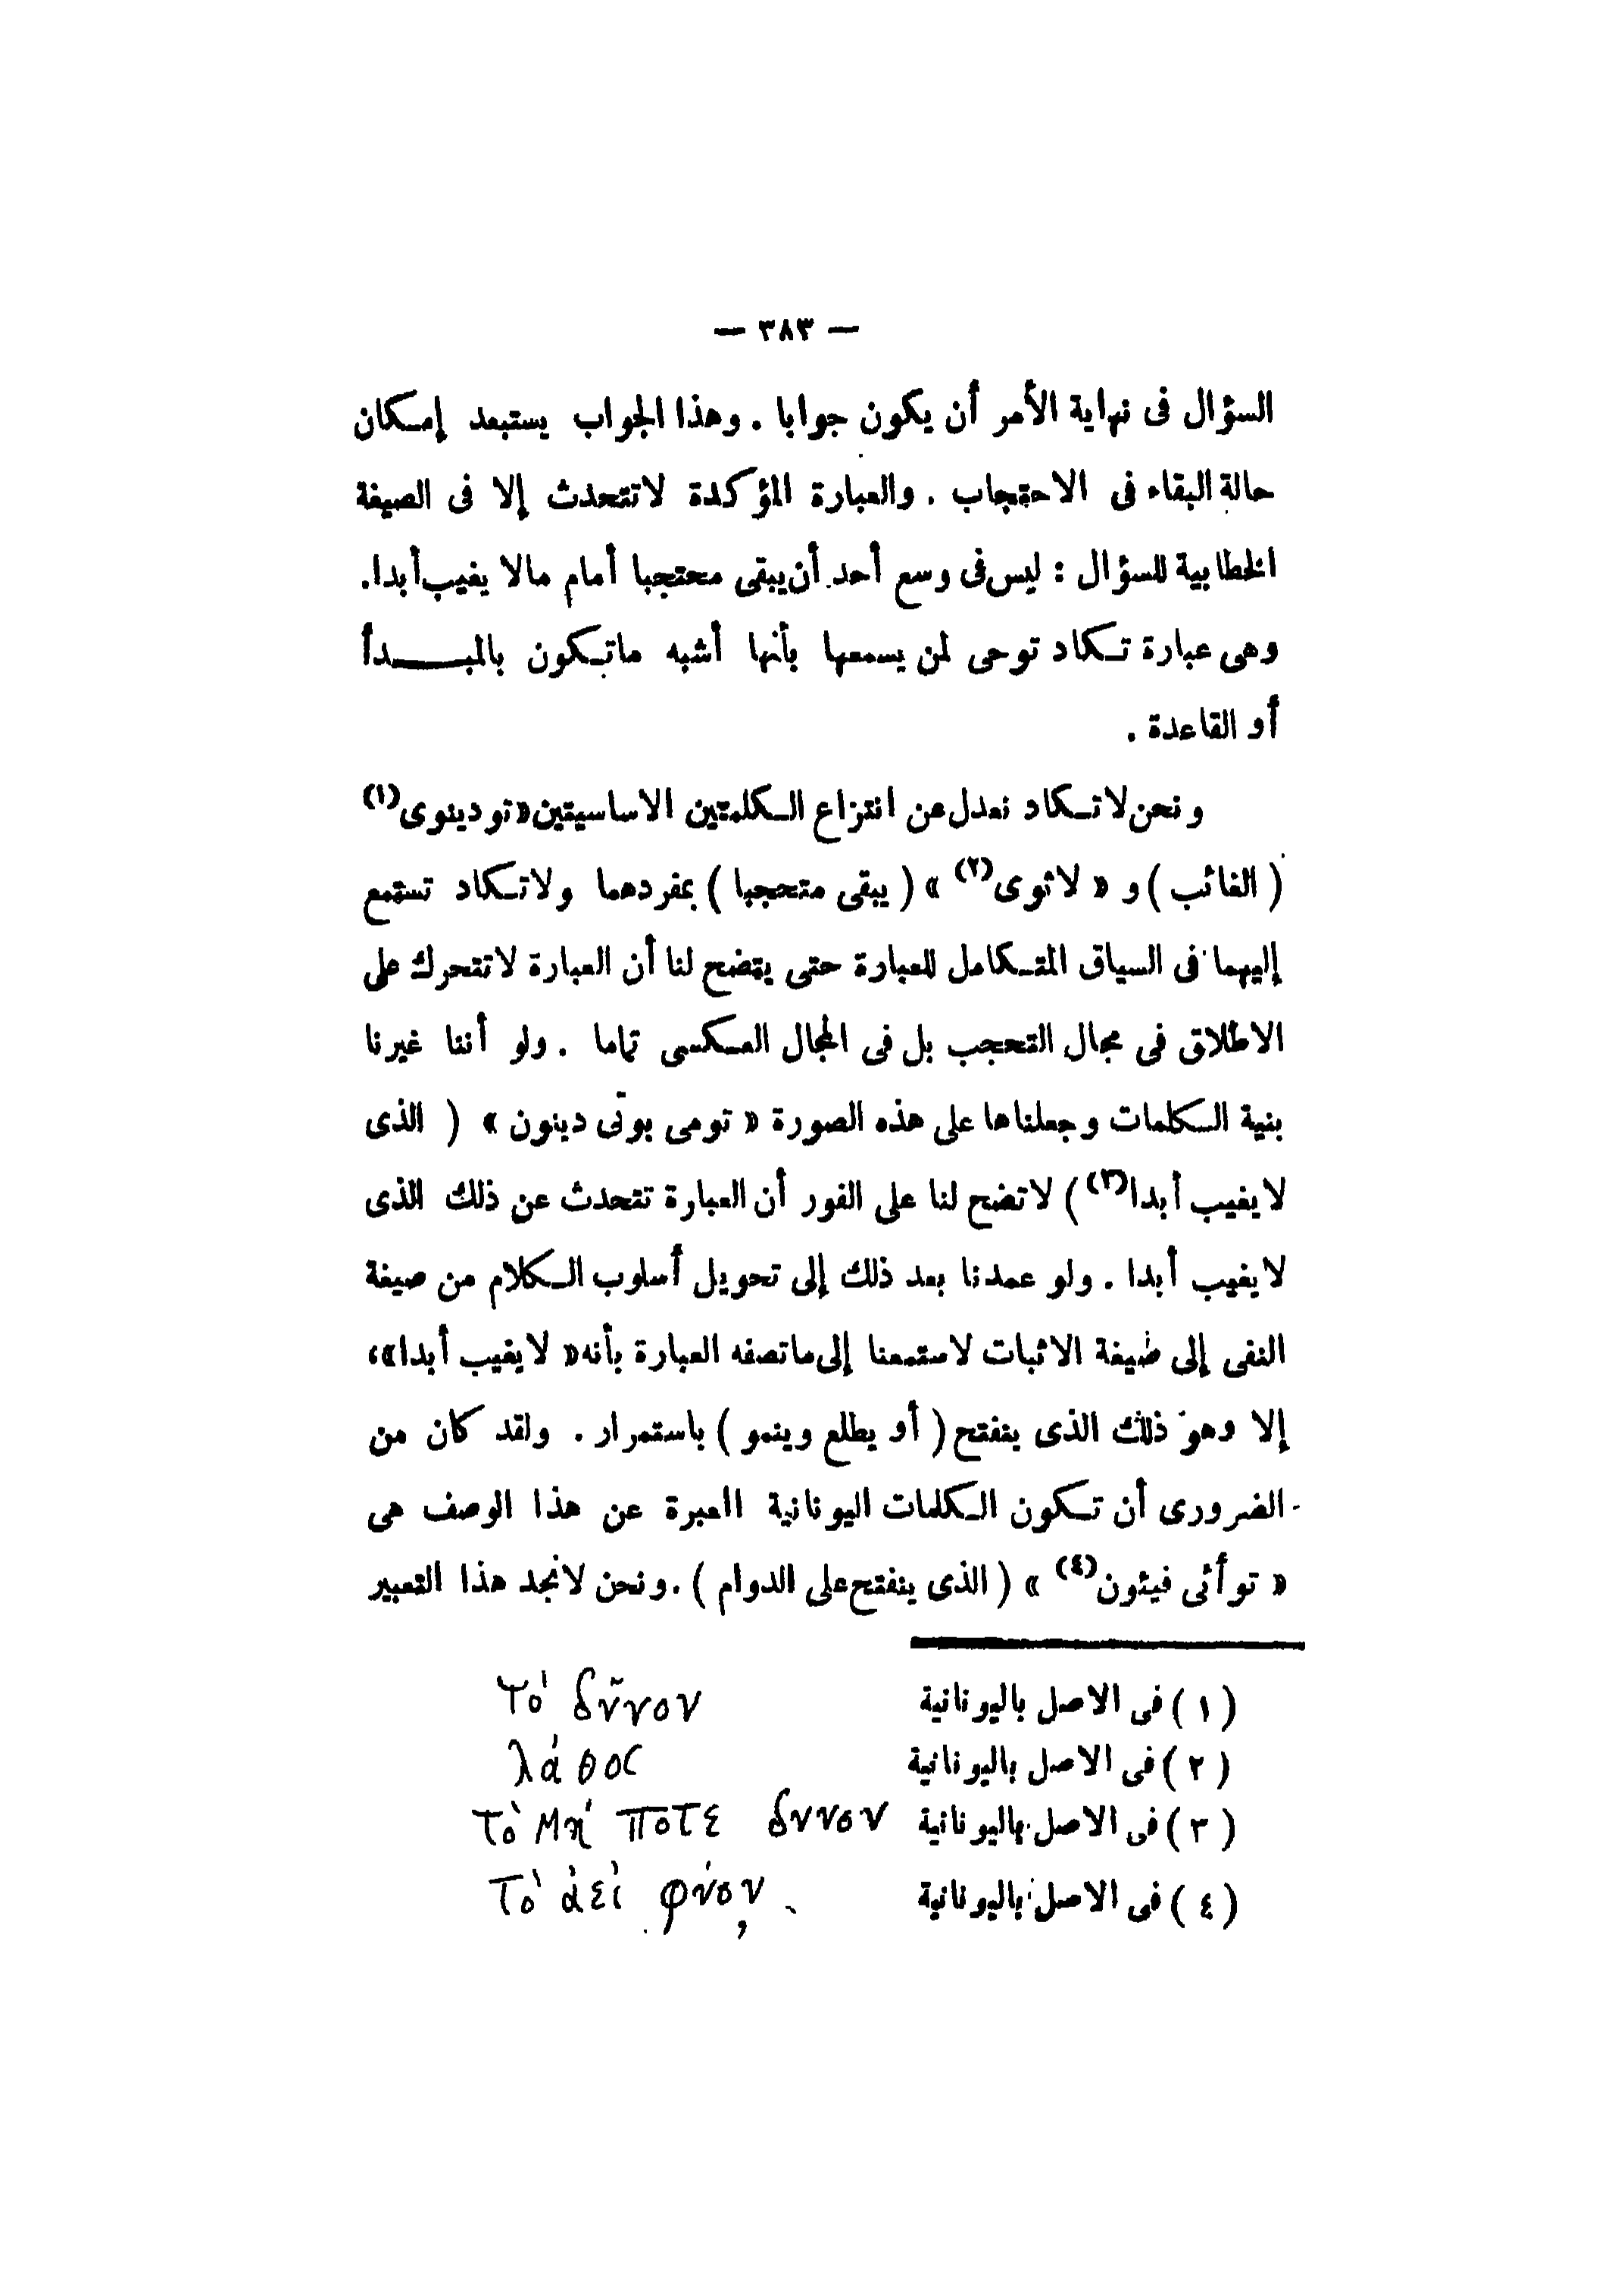 — ٣٨٣ —
السؤال فى نهاية الأمر أن يكون جوابا . وهذا الجواب يستبعد إمكان
حالة البقاء فى الاحتجاب . والعبارة المؤكدة لا تتحدث إلا فى الصيغة
الخطابية للسؤال : ليس فى وسع أحد أن يبقى محتجبا أمام مالا يغيب أبدا.
وهى عبارة تكاد توحى لمن يسمعها بأنها أشبه ماتكون بالمبدأ
أو القاعدة .
ونحن لا نكاد نعدل عن انتزاع الكلمتين الاساسيتين « تو دينوى (١)
( الغائب ) و « لاثوى (٢) » ( يبقى متحجبا ) بمفردهما ولا نكاد نستمع
إليهما فى السياق المتكامل للعبارة حتى يتضح لنا أن العبارة لا تتحرك على
الاطلاق فى مجال التحجب بل فى المجال العكسى تماما . ولو أننا غيرنا
بنية الكلمات وجعلناها على هذه الصورة « تومى بوتى دينون » ( الذى
لا يغيب أبدا (٣) ) لاتضح لنا على الفور أن العبارة تتحدث عن ذلك الذى
لا يغيب أبدا . ولو عمدنا بعد ذلك إلى تحويل أسلوب الكلام من صيغة
النفى إلى صيغة الاثبات لاستمعنا إلى ماتصفه العبارة بأنه « لا يغيب أبدا »،
إلا وهو ذلك الذى ينفتح ( أو يطلع وينمو ) باستمرار . ولقد كان من
الضرورى أن تكون الكلمات اليونانية المعبرة عن هذا الوصف هى
« تو أئى فيئون (٤) » ( الذى ينفتح على الدوام ) . ونحن لا نجد هذا التعبير
( ١ ) فى الاصل باليونانية τό δῦνον
( ٢ ) فى الاصل باليونانية λάθοι
( ٣ ) فى الاصل باليونانية τὸ μή ποτε δυνον
( ٤ ) فى الاصل باليونانية τὸ ἀεὶ φύον